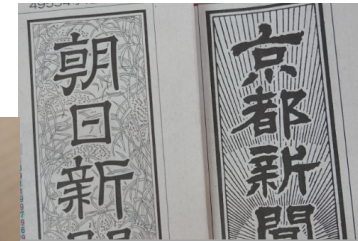 朝日新聞
京都新聞